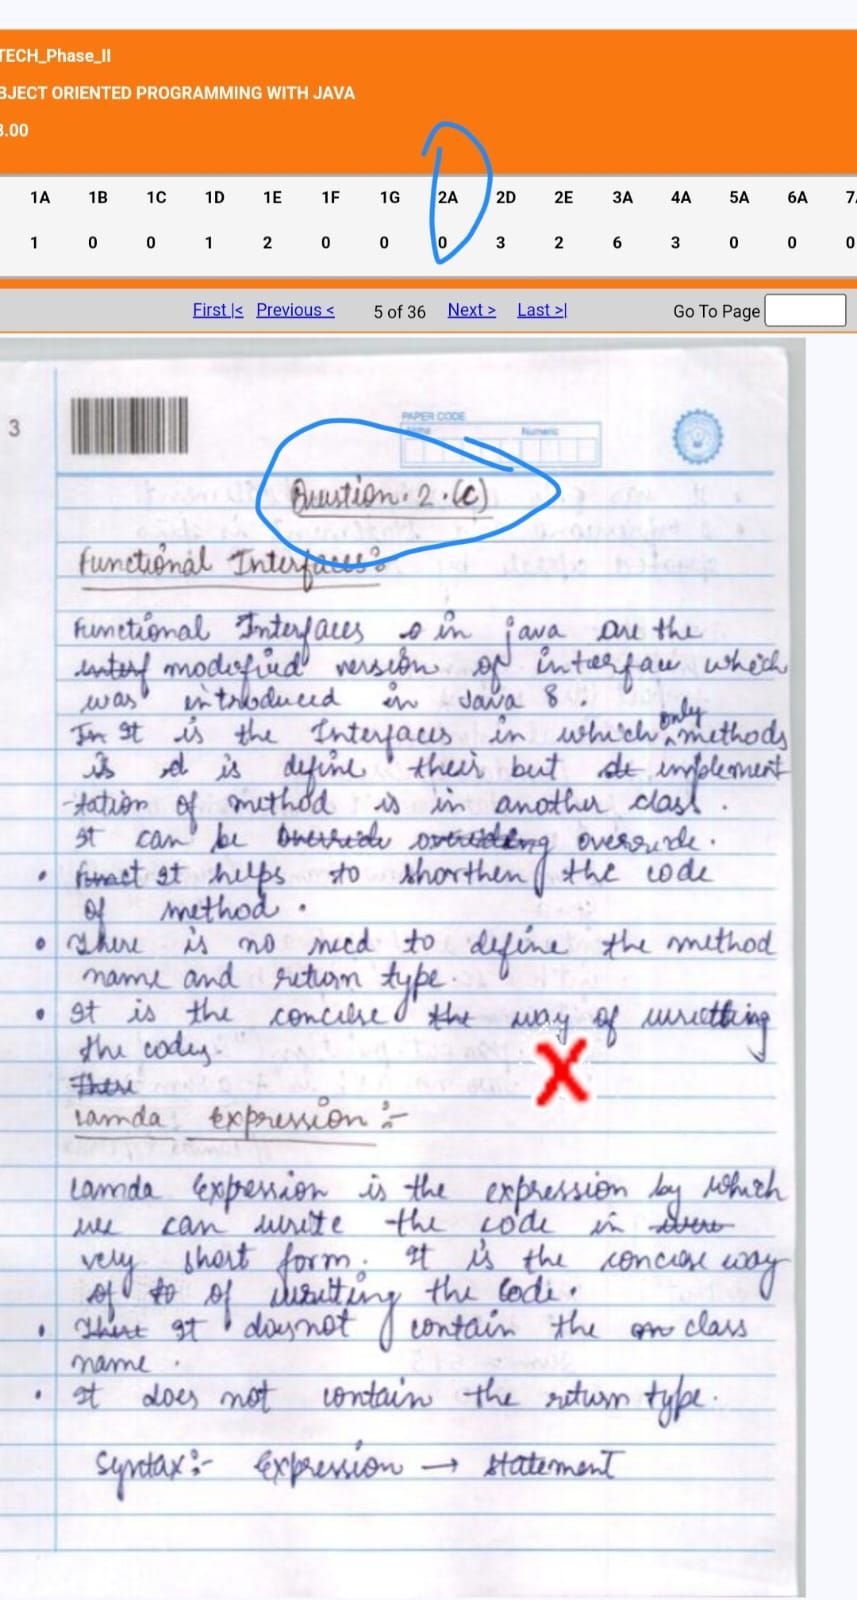 TECH_Phase_II
BJECT ORIENTED PROGRAMMING WITH JAVA
3.00
1A 1B 1C 1D 1E 1F 1G 2A 2D 2E 3A 4A 5A 6A 7A
1 0 0 1 2 0 0 0 3 2 6 3 0 0 0
First |< Previous < 5 of 36 Next > Last >| Go To Page
3
PAPER CODE
Alpha Numeric
Question. 2 .(c)
Functional Interfaces:
Functional Interfaces in java are the
interf modified version of interface which
was introduced in Java 8 .
In It is the Interfaces in which only methods
is is define their but implement
-tation of method is in another class .
It can be override overriding override .
• funct It helps to shorthen the code
of method .
• There is no need to define the method
name and return type .
• It is the concise the way of writting
the codes.
There
Lamda Expression :-
Lamda Expression is the expression by which
we can write the code in
very short form . It is the concise way
of to of writing the code .
• There It does not contain the class
name .
• It does not contain the return type .
Syntax :- Expression → statement